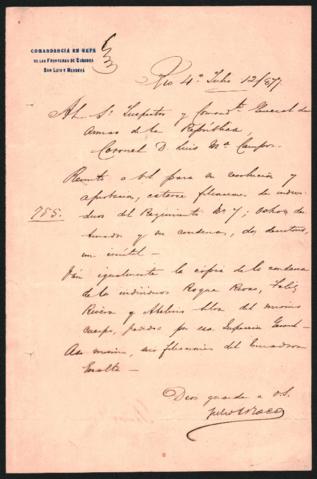 COMANDANCIA EN GEFE
DE LAS FRONTERAS DE CÓRDOBA
SAN LUIS Y MENDOZA
Rio 4º Julio 12/877
Al Sr. Inspector y Comandte. General de
Armas de la República,
Coronel D. Luis Ma. Campos.
Remito a V.S. para su resolucion y
aprobacion, catorce filiaciones de indivi-
duos del Regimiento No 7; ocho de
y un condenas, dos desertores,
un inútil –
755.
Van igualmente la copia de la condena
de los individuos Roque Rivas, Feliz
Rivera y Abelino Silva del mismo
cuerpo, por esa Inspeccion General –
Asi mismo, las filiaciones del
Dios guarde a V.S.